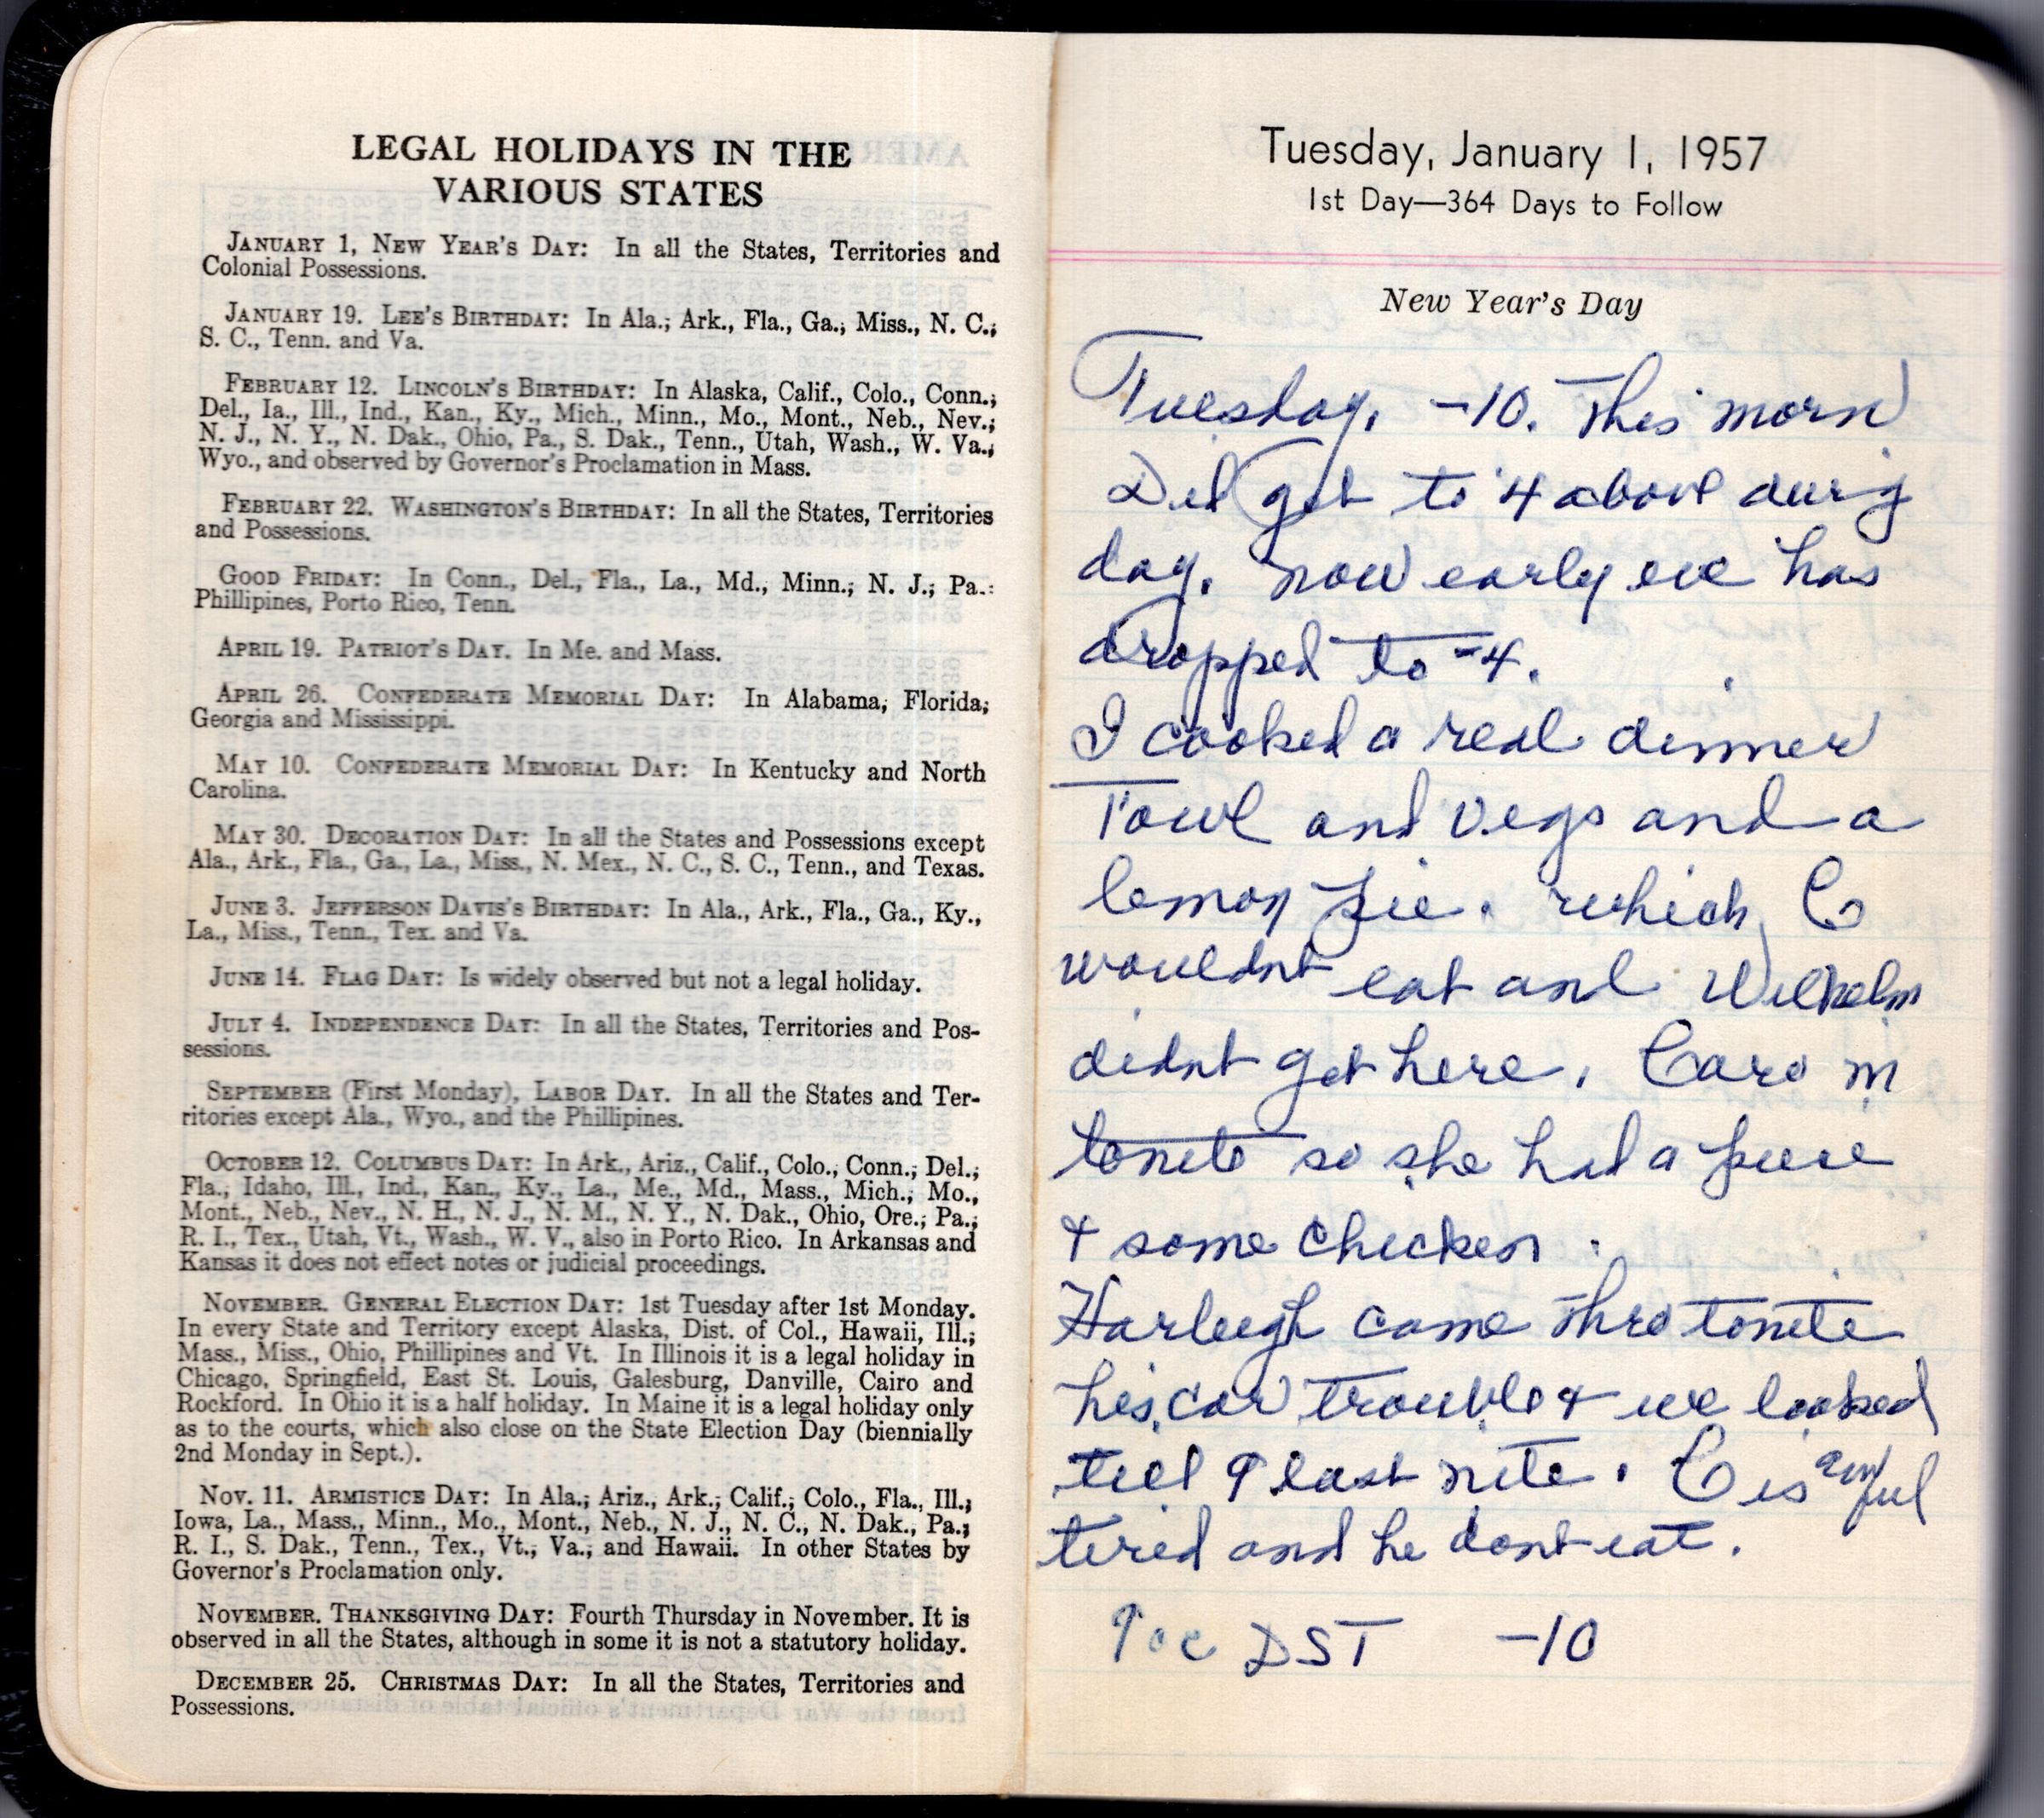 LEGAL HOLIDAYS IN THE
VARIOUS STATES
JANUARY 1, NEW YEAR'S DAY: In all the States, Territories and
Colonial Possessions.
JANUARY 19. LEE'S BIRTHDAY: In Ala.; Ark., Fla., Ga.; Miss., N. C.;
S. C., Tenn. and Va.
FEBRUARY 12. LINCOLN'S BIRTHDAY: In Alaska, Calif., Colo., Conn.;
Del., Ia., Ill., Ind., Kan., Ky., Mich., Minn., Mo., Mont., Neb., Nev.;
N. J., N. Y., N. Dak., Ohio, Pa., S. Dak., Tenn., Utah, Wash., W. Va.;
Wyo., and observed by Governor's Proclamation in Mass.
FEBRUARY 22. WASHINGTON'S BIRTHDAY: In all the States, Territories
and Possessions.
GOOD FRIDAY: In Conn., Del., Fla., La., Md., Minn.; N. J.; Pa.:
Phillipines, Porto Rico, Tenn.
APRIL 19. PATRIOT'S DAY. In Me. and Mass.
APRIL 26. CONFEDERATE MEMORIAL DAY: In Alabama, Florida;
Georgia and Mississippi.
MAY 10. CONFEDERATE MEMORIAL DAY: In Kentucky and North
Carolina.
MAY 30. DECORATION DAY: In all the States and Possessions except
Ala., Ark., Fla., Ga., La., Miss., N. Mex., N. C., S. C., Tenn., and Texas.
JUNE 3. JEFFERSON DAVIS'S BIRTHDAY: In Ala., Ark., Fla., Ga., Ky.,
La., Miss., Tenn., Tex. and Va.
JUNE 14. FLAG DAY: Is widely observed but not a legal holiday.
JULY 4. INDEPENDENCE DAY: In all the States, Territories and Pos-
sessions.
SEPTEMBER (First Monday), LABOR DAY. In all the States and Ter-
ritories except Ala., Wyo., and the Phillipines.
OCTOBER 12. COLUMBUS DAY: In Ark., Ariz., Calif., Colo., Conn.; Del.;
Fla.; Idaho, Ill., Ind., Kan., Ky., La., Me., Md., Mass., Mich.; Mo.,
Mont., Neb., Nev., N. H., N. J., N. M., N. Y., N. Dak., Ohio, Ore.; Pa.;
R. I., Tex., Utah, Vt., Wash., W. V., also in Porto Rico. In Arkansas and
Kansas it does not effect notes or judicial proceedings.
NOVEMBER. GENERAL ELECTION DAY: 1st Tuesday after 1st Monday.
In every State and Territory except Alaska, Dist. of Col., Hawaii, Ill.;
Mass., Miss., Ohio, Phillipines and Vt. In Illinois it is a legal holiday in
Chicago, Springfield, East St. Louis, Galesburg, Danville, Cairo and
Rockford. In Ohio it is a half holiday. In Maine it is a legal holiday only
as to the courts, which also close on the State Election Day (biennially
2nd Monday in Sept.).
NOV. 11. ARMISTICE DAY: In Ala.; Ariz., Ark.; Calif.; Colo., Fla., Ill.;
Iowa, La., Mass., Minn., Mo., Mont., Neb., N. J., N. C., N. Dak., Pa.;
R. I., S. Dak., Tenn., Tex., Vt.; Va.; and Hawaii. In other States by
Governor's Proclamation only.
NOVEMBER. THANKSGIVING DAY: Fourth Thursday in November. It is
observed in all the States, although in some it is not a statutory holiday.
DECEMBER 25. CHRISTMAS DAY: In all the States, Territories and
Possessions.
Tuesday, January 1, 1957
1st Day—364 Days to Follow
New Year's Day
Tuesday. -10. This morn
Did get to 4 above durig
day. now early eve has
dropped to -4.
I cooked a real dinner
Fowl and vegs and a
lemon pie. which C
wouldnt eat and Wilhelm
didnt get here. Caro in
tonite so she had a piece
+ some chicken.
Harleigh came thro tonite
his car trouble + we looked
till 9 last nite. C is awful
tired and he dont eat.
9 oc DST -10